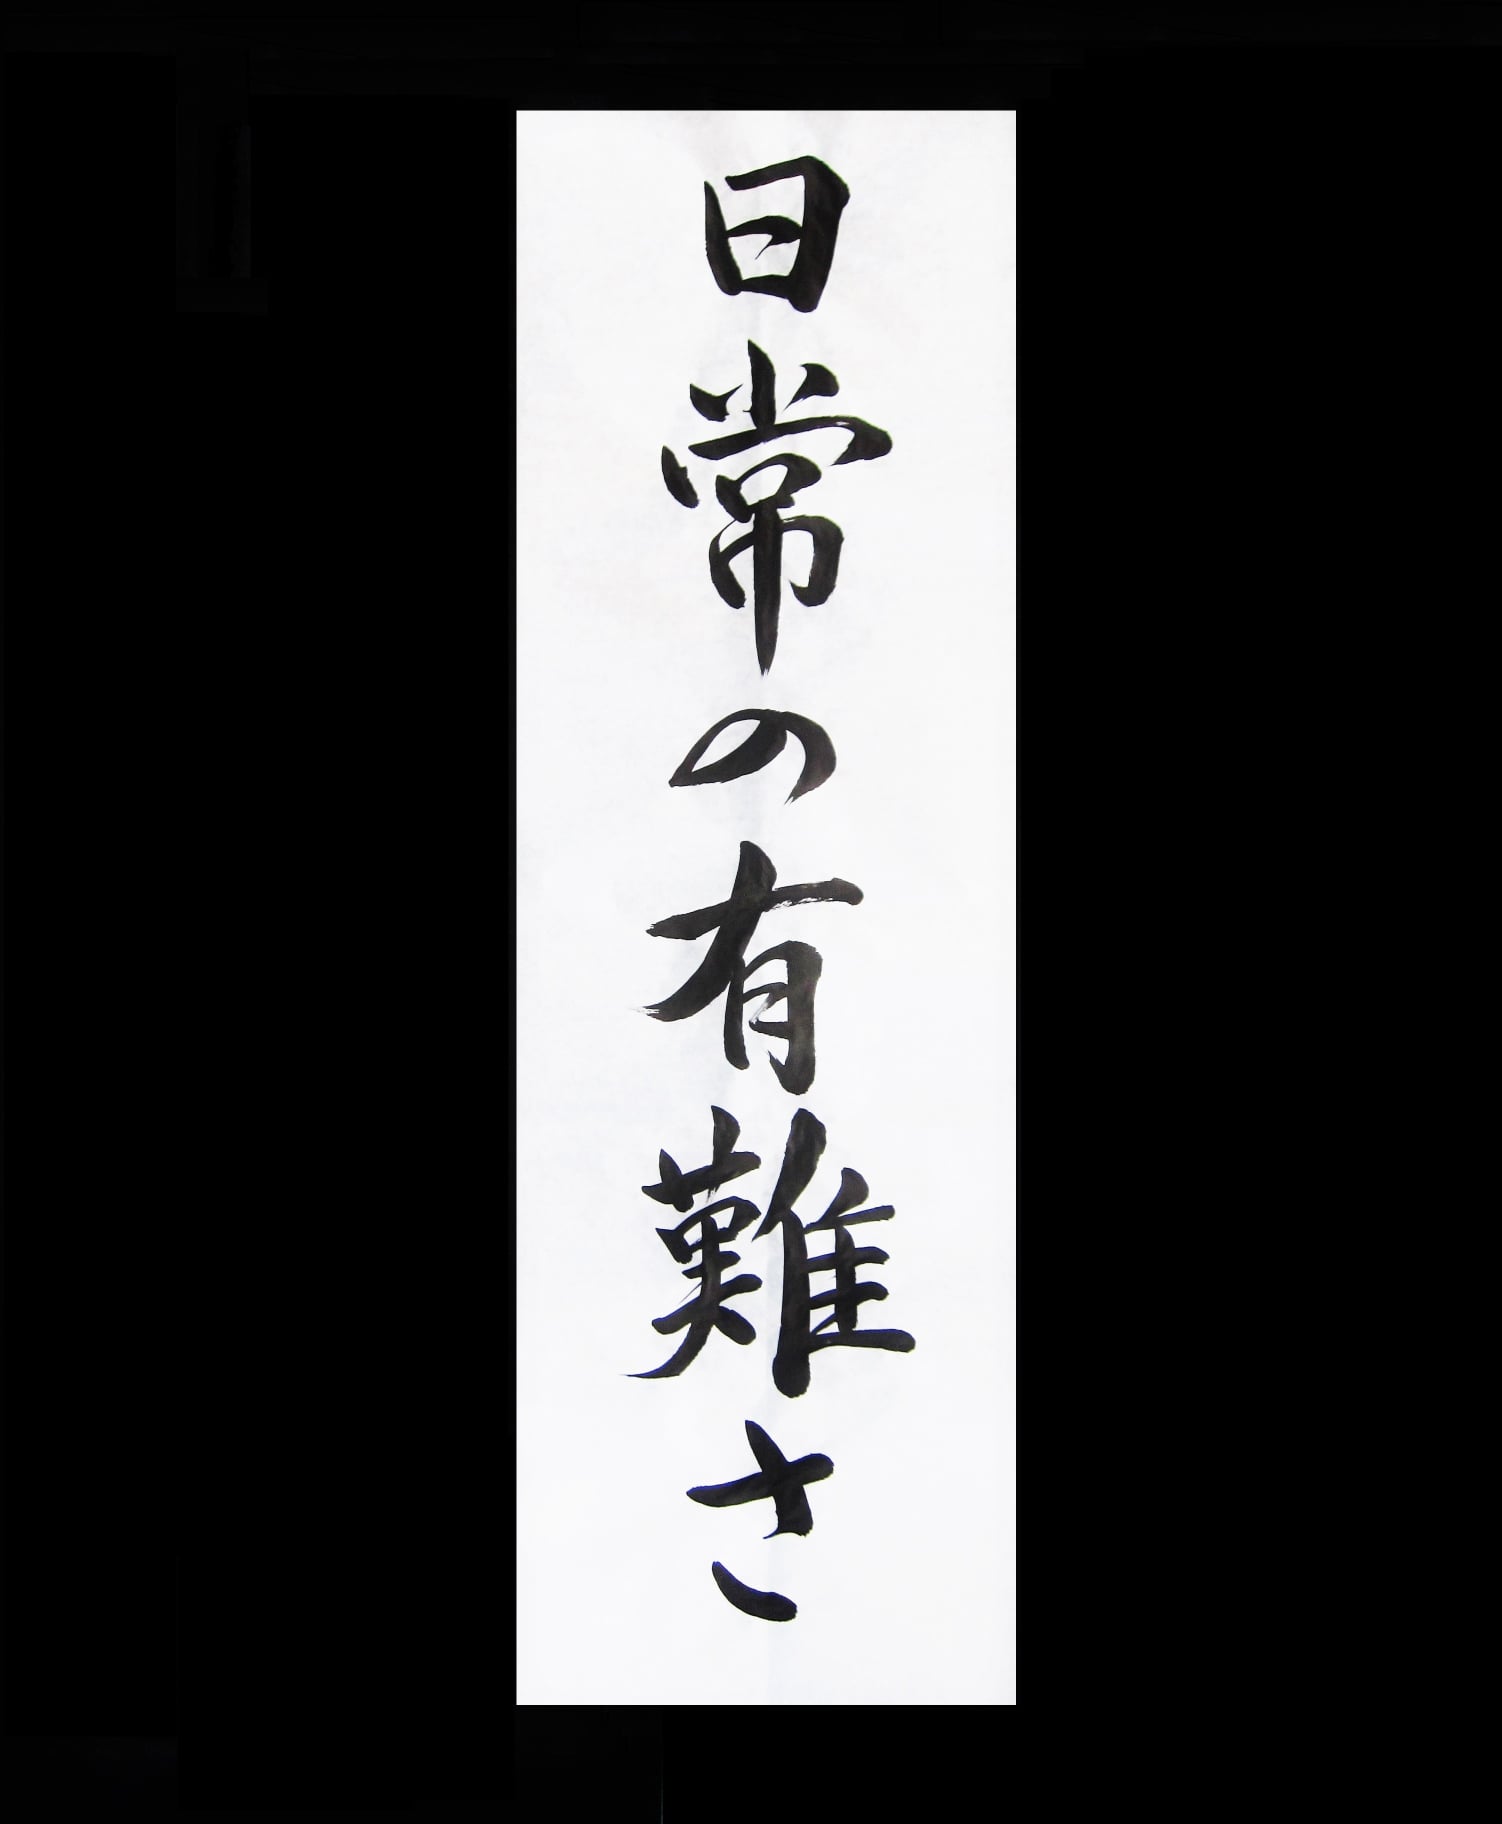 日常の有難さ